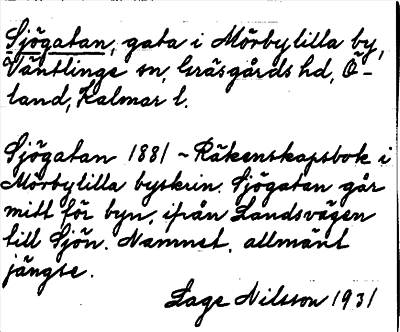 Sjögatan, gata i Mörbylilla by,
Väntlinge sn, Gräsgårds hd, Ö-
land, Kalmar l.
Sjögatan 1881 ~ Räkenskapsbok i
Mörbylilla byskrin. Sjögatan går
mitt för byn, ifrån Landsvägen
till Sjön. Namnet, allmänt
jängse.
Lage Nilsson 1931